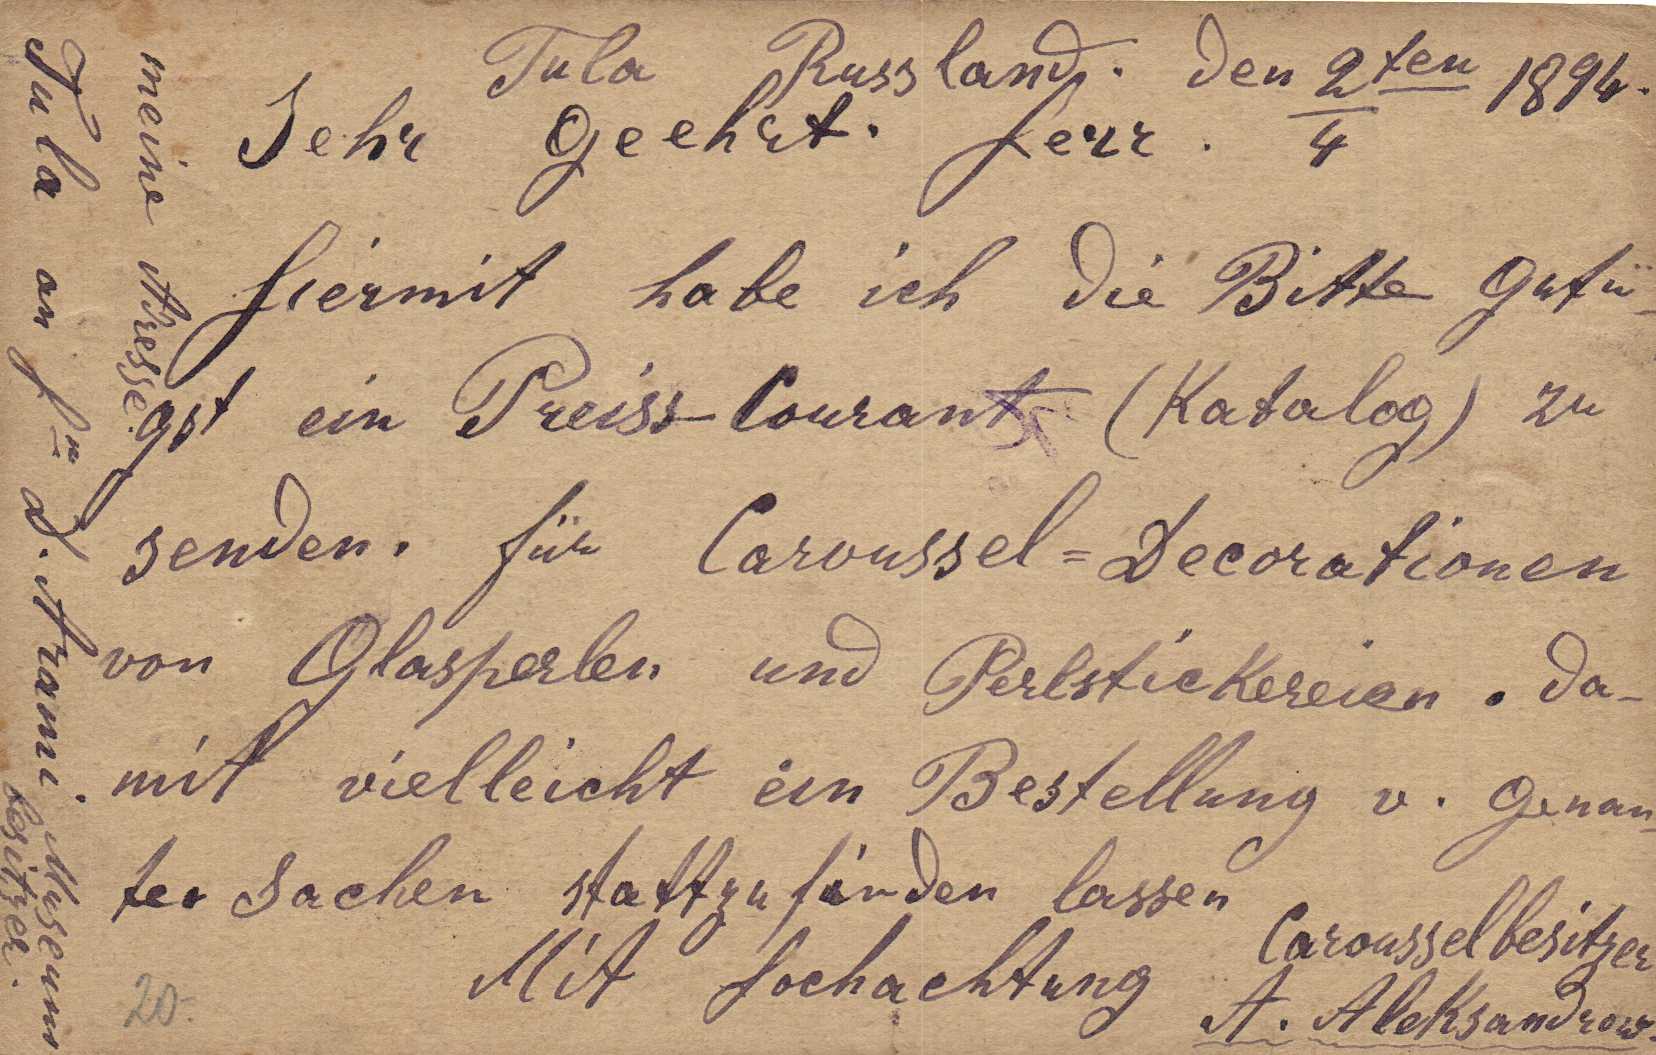 Tula Russland. den 2ten/4 1894.
Sehr Geehrt. Herr.
Hiermit habe ich die Bitte Gefü-
gst ein Preiss-Courant (Katalog) zu
senden. für Caroussel=Decorationen
von Glasperlen und Perlstickereien. da-
mit vielleicht ein Bestellung v. Genan-
ter Sachen stattzufinden lassen
Mit Hochachtung
Carousselbesitzer
A. Aleksandrow.
meine Adresse.
Tula an Hn D. Arami. Museum
besitzer.
20.-